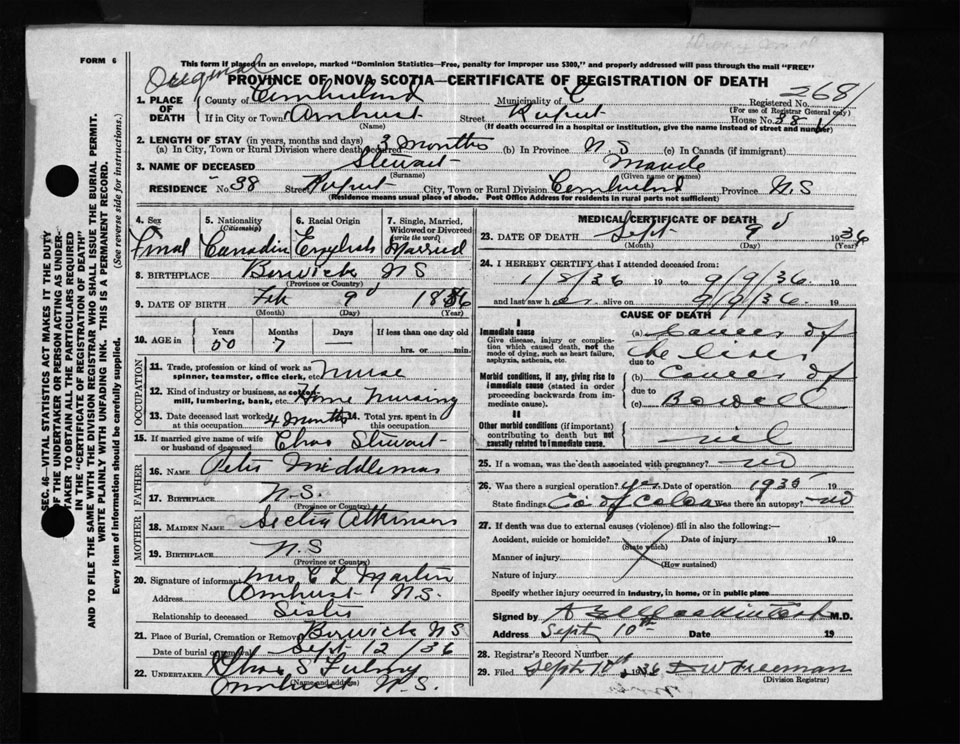 FORM 6
This form if placed in an envelope, marked "Dominion Statistics—Free, penalty for improper use $300," and properly addressed will pass through the mail "FREE"
Original
PROVINCE OF NOVA SCOTIA—CERTIFICATE OF REGISTRATION OF DEATH
2681
1. PLACE OF DEATH
County of Cumberland Municipality of C Registered No.
(For use of Registrar General only)
If in City or Town Amherst Street Rupert House No. 38
(Name) (If death occurred in a hospital or institution, give the name instead of street and number)
2. LENGTH OF STAY (in years, months and days)
(a) In City, Town or Rural Division where death occurred 3 months (b) In Province N.S (c) In Canada (if immigrant)
3. NAME OF DECEASED Stewart Maude
(Surname) (Given name or names)
RESIDENCE No. 38 Street Rupert City, Town or Rural Division Cumberland Province N.S
(Residence means usual place of abode. Post Office Address for residents in rural parts not sufficient)
SEC. 46—VITAL STATISTICS ACT MAKES IT THE DUTY
OF THE UNDERTAKER OR PERSON ACTING AS UNDER-
TAKER TO OBTAIN ALL THE PARTICULARS REQUIRED
IN THE "CERTIFICATE OF REGISTRATION OF DEATH"
AND TO FILE THE SAME WITH THE DIVISION REGISTRAR WHO SHALL ISSUE THE BURIAL PERMIT.
WRITE PLAINLY WITH UNFADING INK. THIS IS A PERMANENT RECORD.
Every item of Information should be carefully supplied. (See reverse side for instructions.)
4. Sex 5. Nationality (Citizenship) 6. Racial Origin 7. Single, Married, Widowed or Divorced (write the word)
Canadian English Married
8. BIRTHPLACE Berwick NS
(Province or Country)
9. DATE OF BIRTH Feb 9 1886
(Month) (Day) (Year)
10. AGE in Years Months Days If less than one day old
50 7 — hrs. or min.
OCCUPATION
11. Trade, profession or kind of work as spinner, teamster, office clerk, etc. Nurse
12. Kind of industry or business, as cotton mill, lumbering, bank, etc. Home Nursing
13. Date deceased last worked at this occupation 4 months 14. Total yrs. spent in this occupation
15. If married give name of wife or husband of deceased Chas Stewart
FATHER
16. Name Peter Middlemas
17. Birthplace N.S.
(Province or Country)
MOTHER
18. Maiden Name Atkinson
19. Birthplace N.S
(Province or Country)
20. Signature of informant Mrs C L Martin
Address Amherst N.S.
Relationship to deceased Sister
21. Place of Burial, Cremation or Removal Berwick NS
Date of burial or removal Sept 12/36
22. UNDERTAKER Chas S
(Name and address)
Amherst N.S.
MEDICAL CERTIFICATE OF DEATH
23. DATE OF DEATH Sept 9 1936
(Month) (Day) (Year)
24. I HEREBY CERTIFY that I attended deceased from:
1/8/36 19 to 9/9/36 19
and last saw her alive on 9/9/36 19
CAUSE OF DEATH
I
Immediate cause
Give disease, injury or complication which caused death, not the mode of dying, such as heart failure, asphyxia, asthenia, etc.
(a) Cancer of
the liver
due to
Morbid conditions, if any, giving rise to immediate cause (stated in order proceeding backwards from immediate cause).
(b) Cancer of
due to
(c) Bowell
II
Other morbid conditions (if important) contributing to death but not causally related to immediate cause.
nil
25. If a woman, was the death associated with pregnancy? no
26. Was there a surgical operation? yes Date of operation 1935 19
State findings Ca of Colon Was there an autopsy? no
27. If death was due to external causes (violence) fill in also the following:—
Accident, suicide or homicide? Date of injury 19
(State which)
Manner of injury
(How sustained)
Nature of injury
Specify whether injury occurred in Industry, in home, or in public place
Signed by M.D.
Address Sept 10th Date 19
28. Registrar's Record Number
29. Filed Sept 10th 1936 D W Freeman
(Division Registrar)